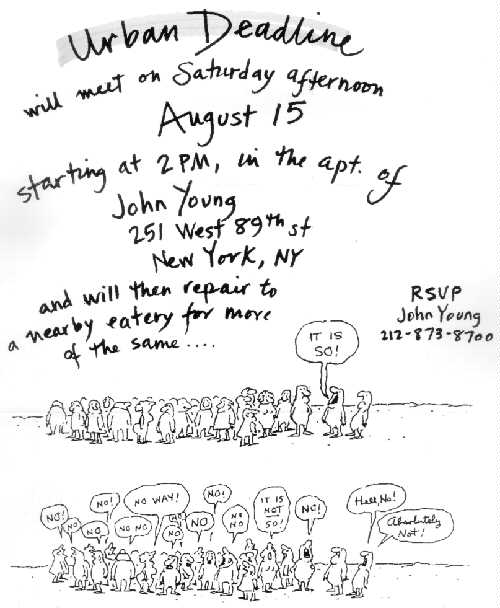 Urban Deadline
will meet on Saturday afternoon
August 15
starting at 2 PM, in the apt. of
John Young
251 West 89th st
New York, NY
and will then repair to
a nearby eatery for more
of the same ....
RSVP
John Young
212-873-8700
IT IS
SO!
NO!
NO
NO
NO!
NO NO
NO WAY!
NO
NO
NO
NO!
NO
NO
IT IS
NOT
SO!
NO!
Hell, No!
Absolutely
Not!